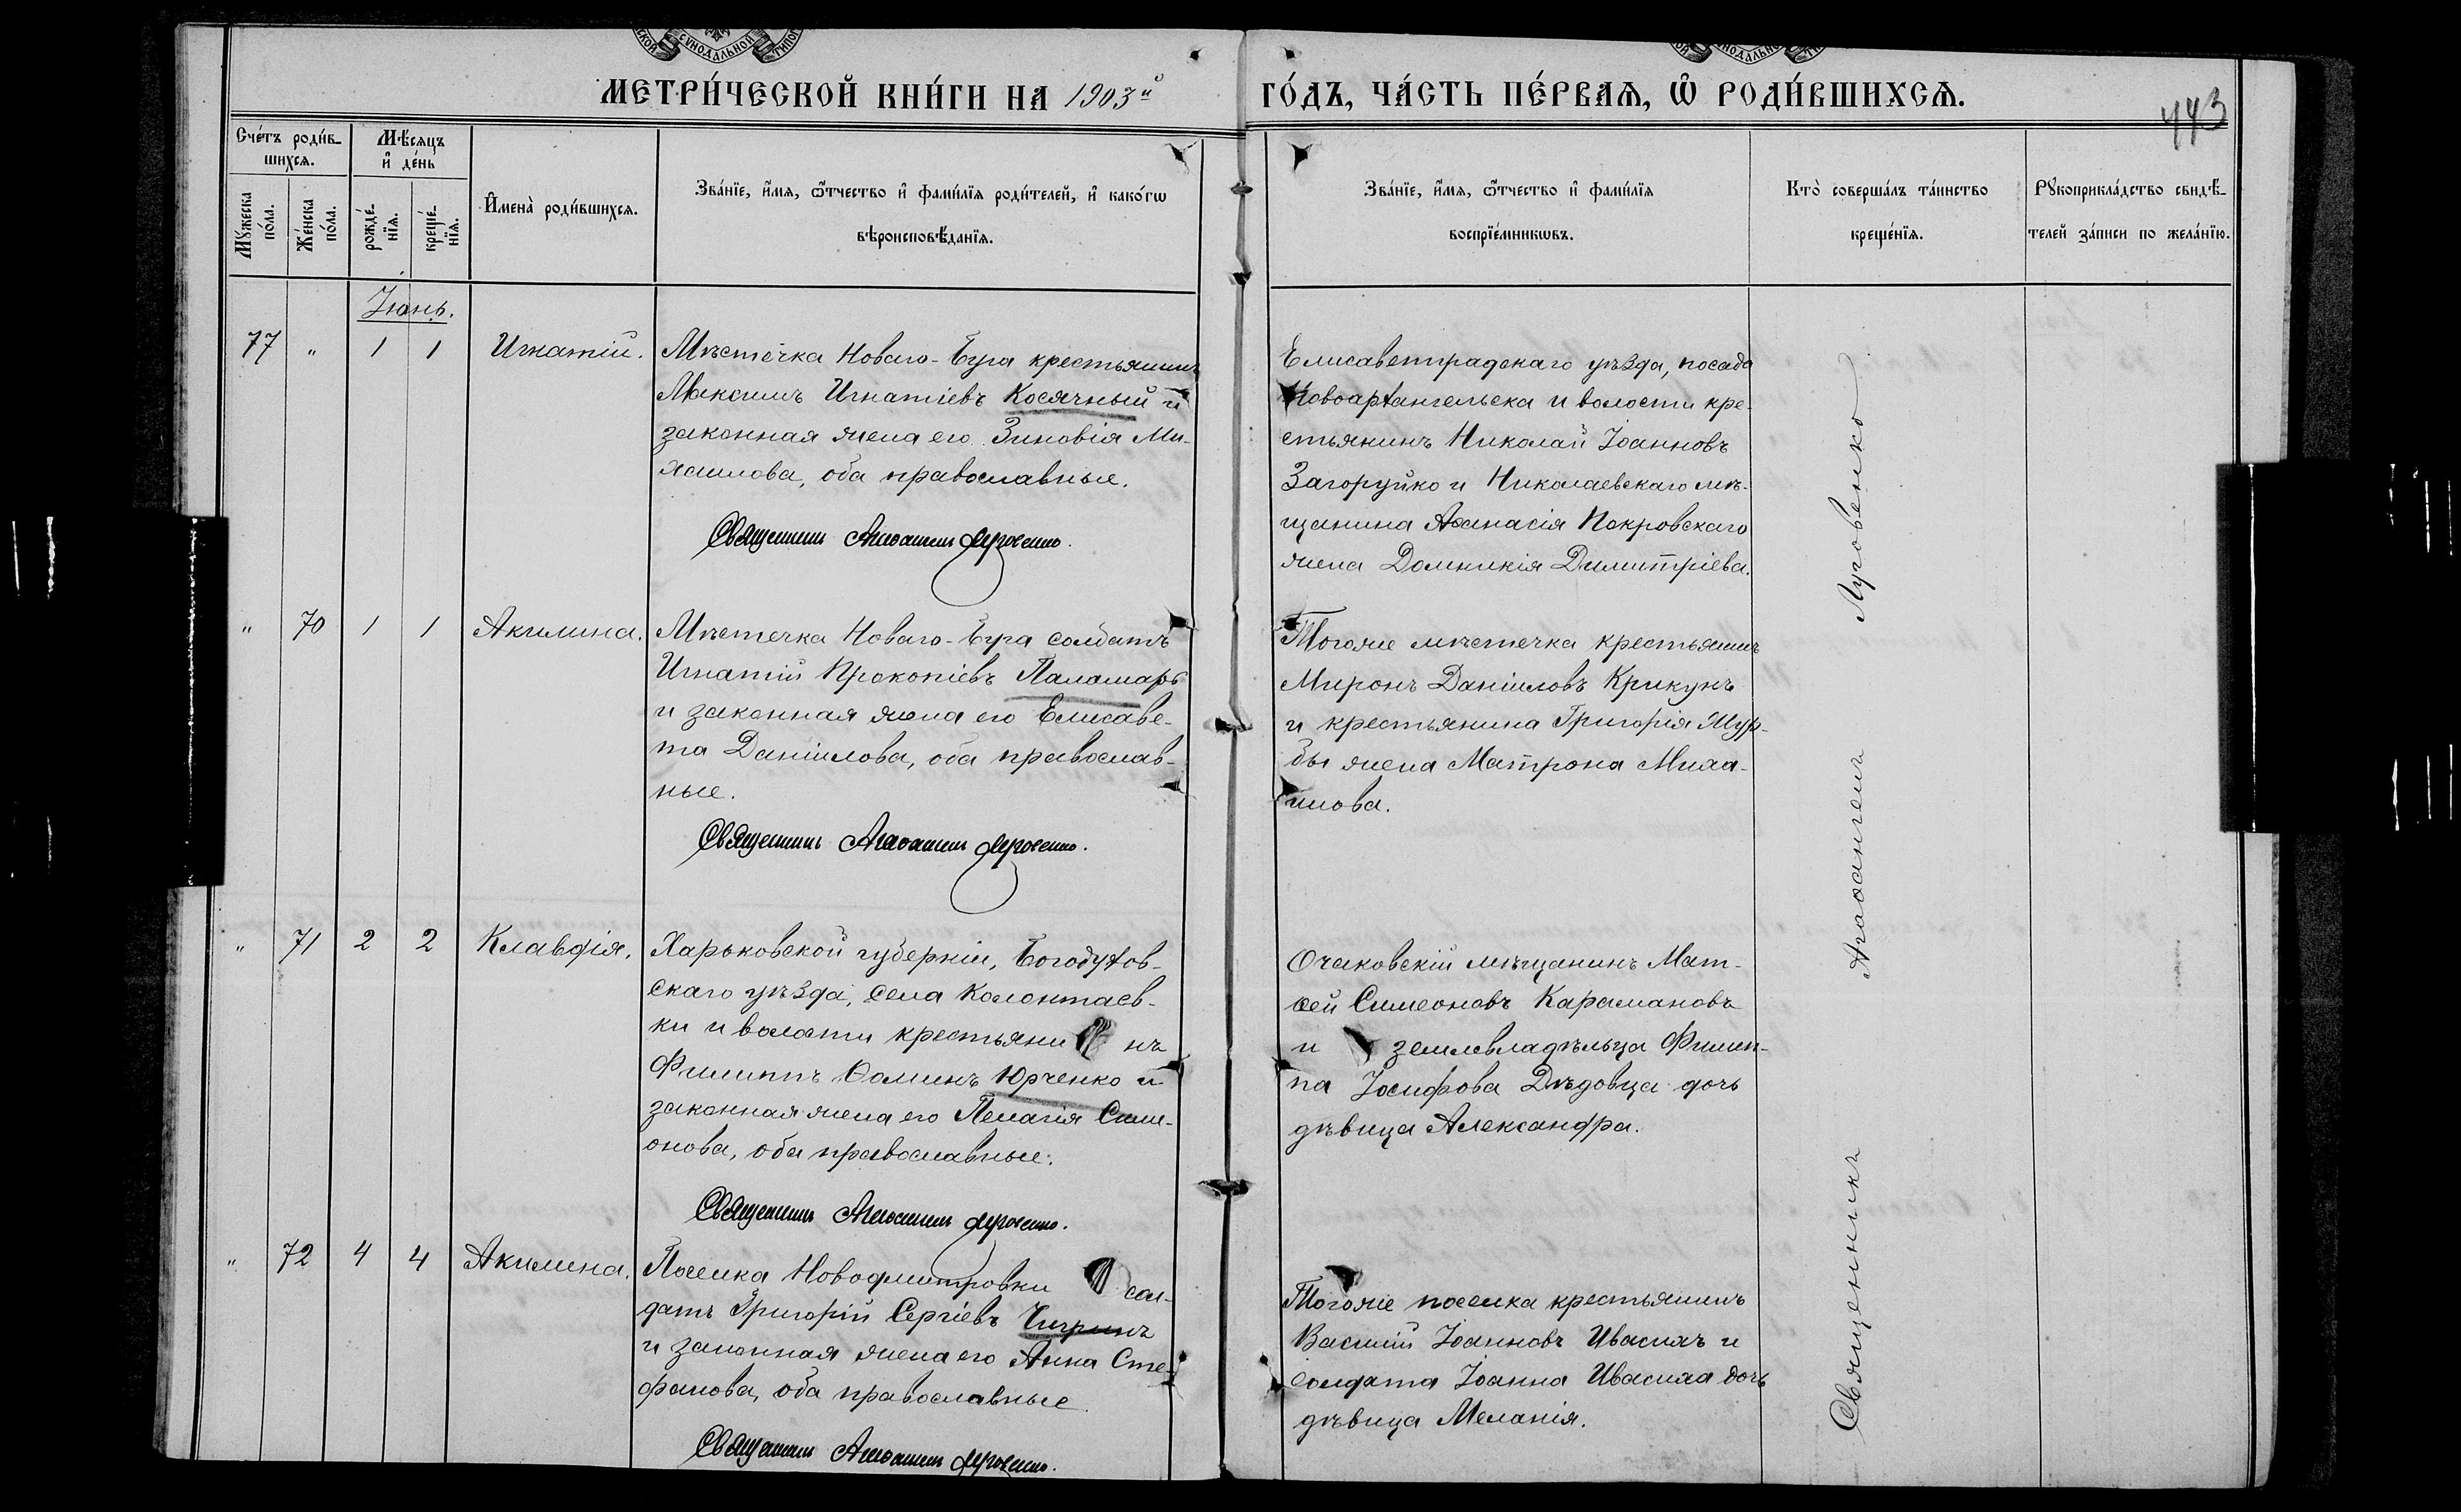 СѴНОДАЛЬНОЙ
МЕТРИ́ЧЕСКОЙ КНИ́ГИ НА 1903й ГО́ДЪ, ЧА́СТЬ ПЕ́РВАЯ, Ѡ РОДИ́ВШИХСЯ.
443
Сче́тъ роди́в-
шихся.
Мꙋ́жеска по́ла.
Же́нска по́ла.
Мѣ́сяцъ и҆ де́нь
рожде́-
нїя.
креще́-
нїя.
И҆мена̀ роди́вшихся.
Зва́нїе, и҆́мя, ѻ҆́тчество и҆ фами́лїя роди́телей, и҆ како́гѡ
вѣроисповѣ́данїя.
Зва́нїе, и҆́мя, ѻ҆́тчество и҆ фами́лїя
воспрїе́мникѡвъ.
Кто̀ соверша́лъ та́инство
креще́нїя.
Рꙋкоприкла́дство свидѣ́-
телей за́писи по жела́нїю.
Іюнь.
77 " 1 1 Игнатій.
Мѣстечка Новаго-Буга крестьянинъ
Максимъ Игнатіевъ Косячный и
законная жена его Зиновія Ми-
хаилова, оба православные.
Священникъ Агаѳангелъ Луговенко.
Елисаветградскаго уѣзда, посада
Новоархангельска и волости кре-
стьянинъ Николай Іоанновъ
Загоруйко и Николаевскаго мѣ-
щанина Аѳанасія Покровскаго
жена Домникія Димитріева.
" 70 1 1 Акилина.
Мѣстечка Новаго-Буга солдатъ
Игнатій Прокопіевъ Паламарь
и законная жена его Елисаве-
та Даніилова, оба православ-
ные.
Священникъ Агаѳангелъ Луговенко.
Тогоже мѣстечка крестьянинъ
Миронъ Даніиловъ Крикунъ
и крестьянина Григорія Жур-
бы жена Матрона Миха-
илова.
" 71 2 2 Клавдія.
Харьковской губерніи, Богодухов-
скаго уѣзда, села Колонтаев-
ки и волости крестьяни нъ
Филиппъ Ѳоминъ Юрченко и
законная жена его Пелагія Симе-
онова, оба православные.
Священникъ Агаѳангелъ Луговенко.
Очаковскій мѣщанинъ Мат-
ѳей Симеоновъ Карамановъ
и землевладѣльца Филип-
па Іосифова Дѣдовца дочь
дѣвица Александра.
" 72 4 4 Акилина.
Поселка Новодмитровки сол-
датъ Григорій Сергіевъ Чигринъ
и законная жена его Анна Сте-
фанова, оба православные.
Священникъ Агаѳангелъ Луговенко.
Тогоже поселка крестьянинъ
Василій Іоанновъ Ивасихъ и
солдата Іоанна Ивасиха дочь
дѣвица Меланія.
Священникъ Агаѳангелъ Луговенко